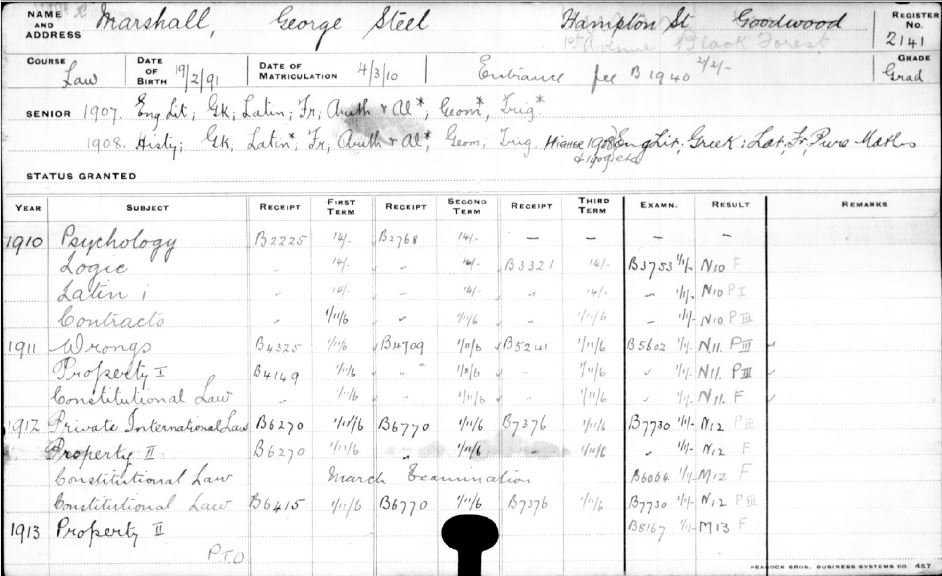 NAME AND ADDRESS Marshall, George Steel Hampton St Goodwood REGISTER No. 2141
1st Avenue Black Forest
COURSE Law DATE OF BIRTH 19/2/91 DATE OF MATRICULATION 4/3/10 Entrance fee B1940 2/2/- GRADE Grad
SENIOR 1907. Eng Lit; Gk; Latin; Fr; Arith & Al*; Geom*, Trig*
1908. Histy; Gk, Latin*; Fr; Arith & Al*; Geom; Trig. HIGHER 1908 Eng Lit; Greek; Lat, Fr, Pure Maths
STATUS GRANTED
YEAR SUBJECT RECEIPT FIRST TERM RECEIPT SECOND TERM RECEIPT THIRD TERM EXAMN. RESULT REMARKS
1910 Psychology B2225 14/- B2768 14/- — — — —
Logic " 14/- " 14/- B3321 14/- B3753 1/1/- N10 F
Latin i " 14/- " 14/- " 14/- " 1/1/- N10 P I
Contracts " 1/11/6 " 1/11/6 " 1/11/6 " 1/1/- N10 P III
1911 Wrongs B4325 1/11/6 B4709 1/11/6 B5241 1/11/6 B5602 1/1/- N11. P III
Property I B4149 1/11/6 " 1/11/6 " 1/11/6 " 1/1/- N11. P III
Constitutional Law " 1/11/6 " 1/11/6 " 1/11/6 " 1/1/- N11. F
1912 Private International Law B6270 1/11/6 B6770 1/11/6 B7376 1/11/6 B7730 1/1/- N12 P III
Property II B6270 1/11/6 " 1/11/6 " 1/11/6 " 1/1/- N12 F
Constitutional Law March Examination B6064 1/1/- M12 F
Constitutional Law B6415 1/11/6 B6770 1/11/6 B7376 1/11/6 B7730 1/1/- N12 P III
1913 Property II B8167 1/1/- M13 F
P.T.O
PEACOCK BROS. BUSINESS SYSTEMS CO. 457